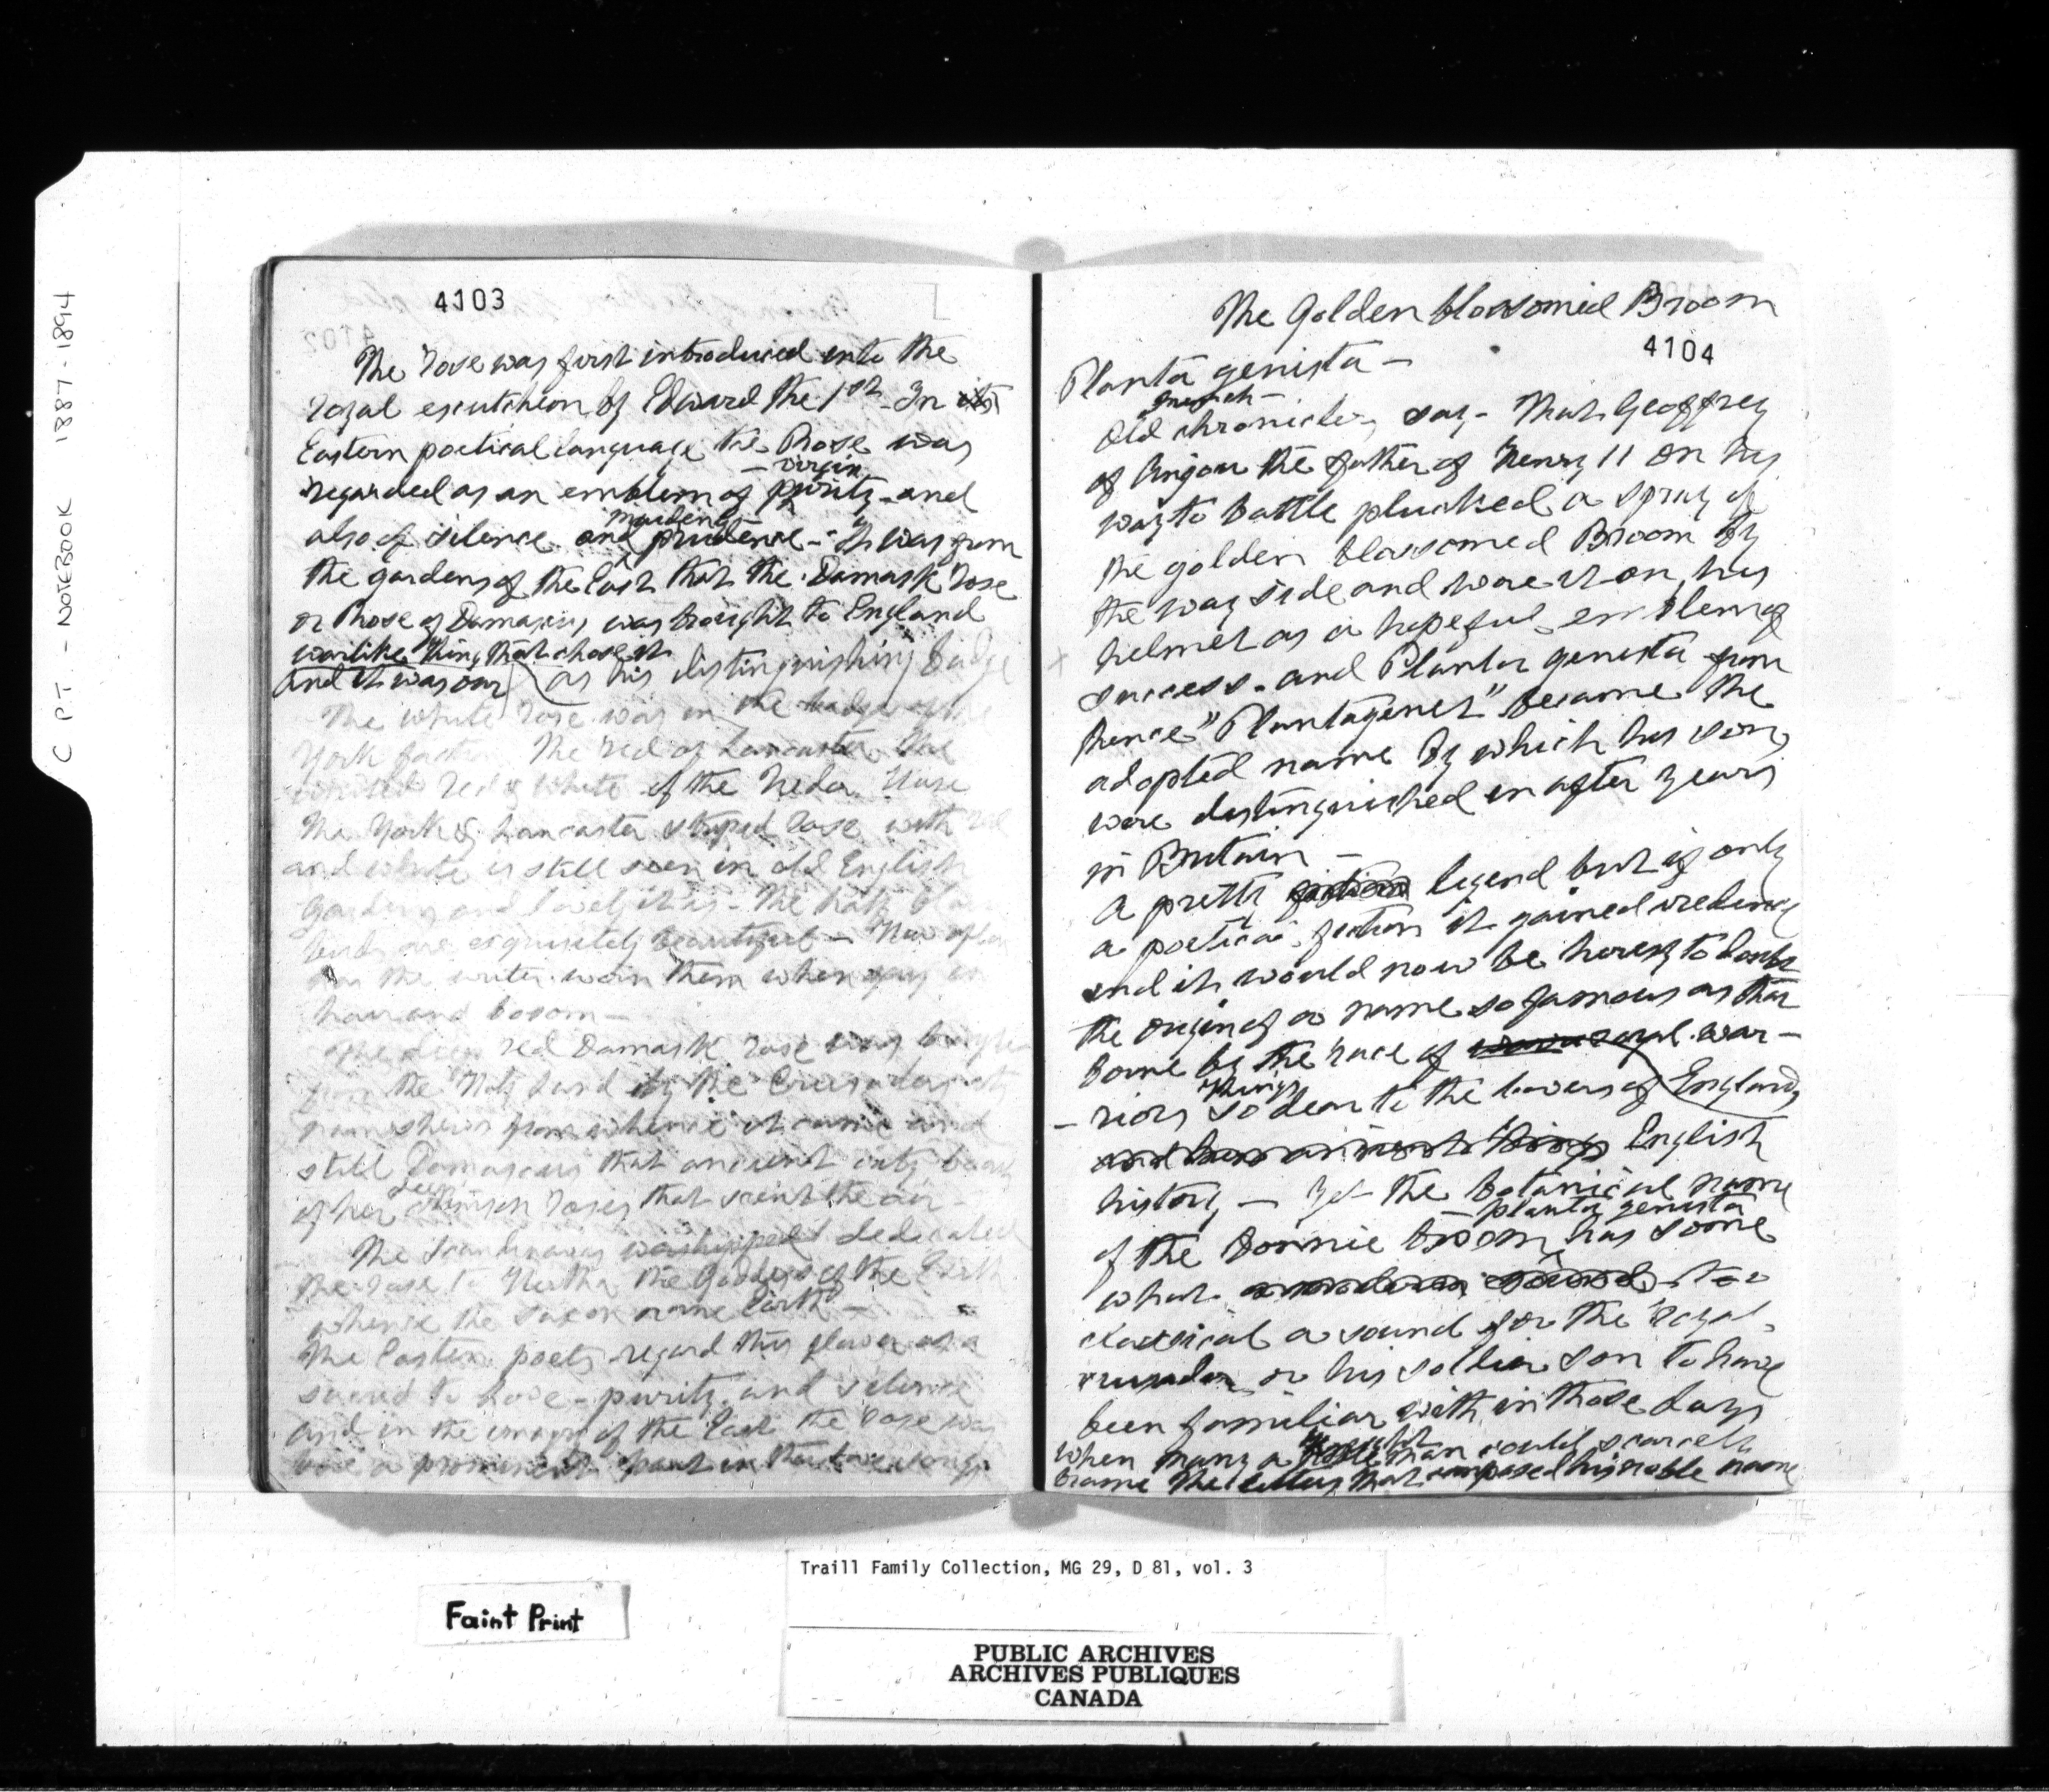 C P.T. - NOTEBOOK 1887-1894
4103
The rose was first introduced into the
royal escutcheon by Edward the 1st - In
Eastern poetical language the Rose was
- virgin
regarded as an emblem of purity - and
maidenly
also of silence and prudence - It was from
the gardens of the East that the Damask rose
or Rose of Damascus was brought to England
warlike King that chose it
and it was our as his distinguishing badge
The white rose was in the badge of the
York The red of Lancaster the
united red & white of the
The York & Lancaster striped rose with red
and white is still seen in old English
gardens and lovely it is - The half blown
buds are exquisitely beautiful - How often
has the writer worn them when gay in
hair and bosom -
The deep red Damask rose was brought
from the Holy Land by the Crusaders its
name shews from whence it came and
still Damascus that ancient city boasts
deep
of her crimson roses that scent the air -
The Scandinavians worshipped dedicated
the rose to Hertha the Goddess of the Earth
whence the Saxon name Earth -
The Eastern poets regard this flower as
sacred to love - purity and silence
and in the of the East the rose was
a prominent part in their love songs
The Golden blossomed Broom
4104
Planta genista -
French -
Old chroniclers say - That Geoffrey
of Anjou the father of Henry 11 on his
way to battle plucked a spray of
the golden blossomed Broom by
the way side and wore it on his
helmet as a hopeful emblem of
success - and Planta genista from
hence "Plantagenet" became the
adopted name by which his sons
were distinguished in after years
in Britain -
A pretty fiction legend but if only
a poetical fiction it gained credence
and it would now be heresy to doubt
the origin of a name so famous as that
borne by the race of royal war -
Kings
- riors so dear to the lovers of England
English
history - Yet the botanical name
- planta genista
of the Bonnie broom has some
what too
classical a sound for the royal
crusader or his soldier son to have
been familiar with in those days
when many a noble man could scarcely
frame the letters that composed his noble name
Traill Family Collection, MG 29, D 81, vol. 3
Faint Print
PUBLIC ARCHIVES
ARCHIVES PUBLIQUES
CANADA